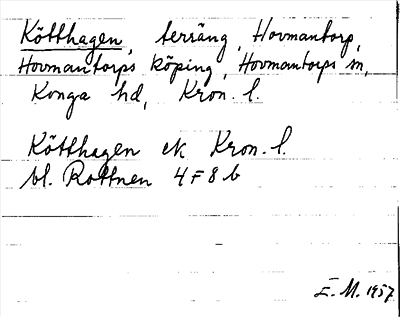 Kötthagen, terräng, Hovmantorp,
Hovmantorps köping, Hovmantorps sn,
Konga hd, Kron. l.
Kötthagen ek Kron. l.
bl. Rottnen 4 F 8 b
E. M. 1957